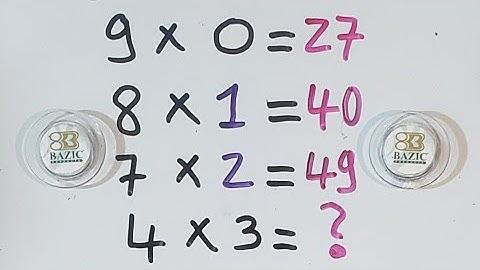 9 x 0 = 27
8 x 1 = 40
7 x 2 = 49
4 x 3 = ?
BAZIC
BAZIC